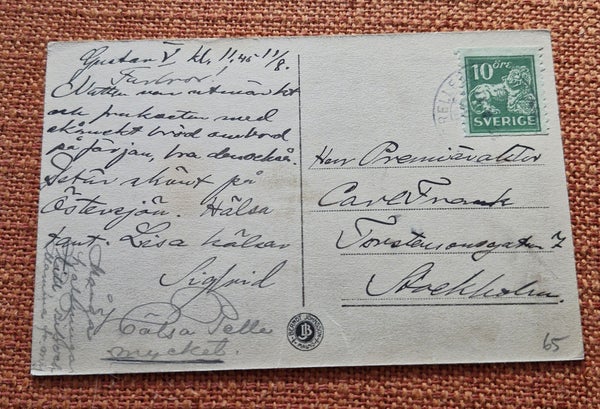 Gustav V kl. 11,45 13/8.
Farbror!
Natten var utmärkt
och frukosten med
skånskt bröd ombord
på färjan, bra den också.
Det är skönt på
Östersjön. Hälsa
tant. Lisa hälsar
Sigfrid
Hälsa Pelle
mycket.
Många
10 ÖRE
SVERIGE
RELLE
Herr
Carl Frank
Torstensonsgatan 7
Stockholm.
65